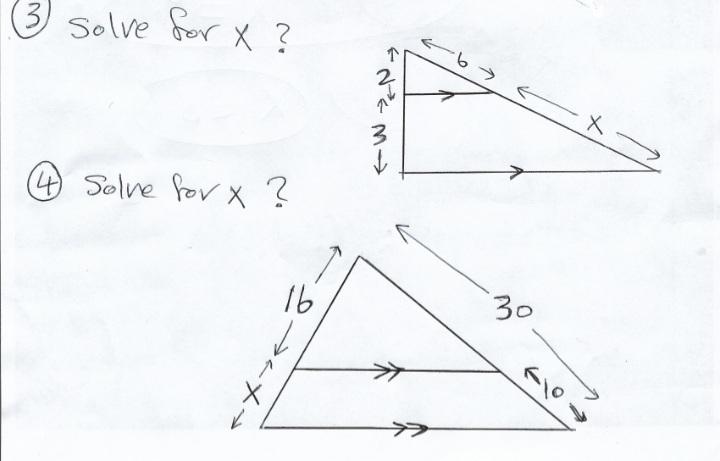 ③ Solve for x ?
6
2
x
3
④ Solve for x ?
16
30
x
10